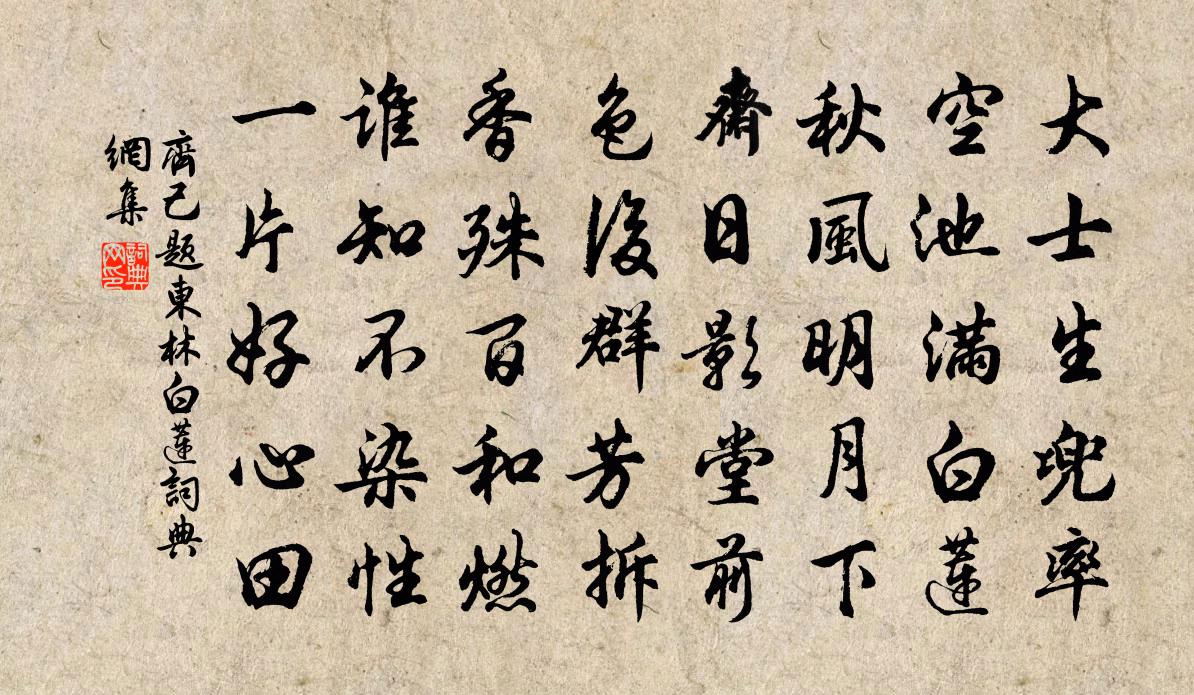 大士生兜率
空池滿白蓮
秋風明月下
齋日影堂前
色後群芳拆
香殊百和燃
誰知不染性
一片好心田
齊己題東林白蓮詞典
網集
詞典
网印